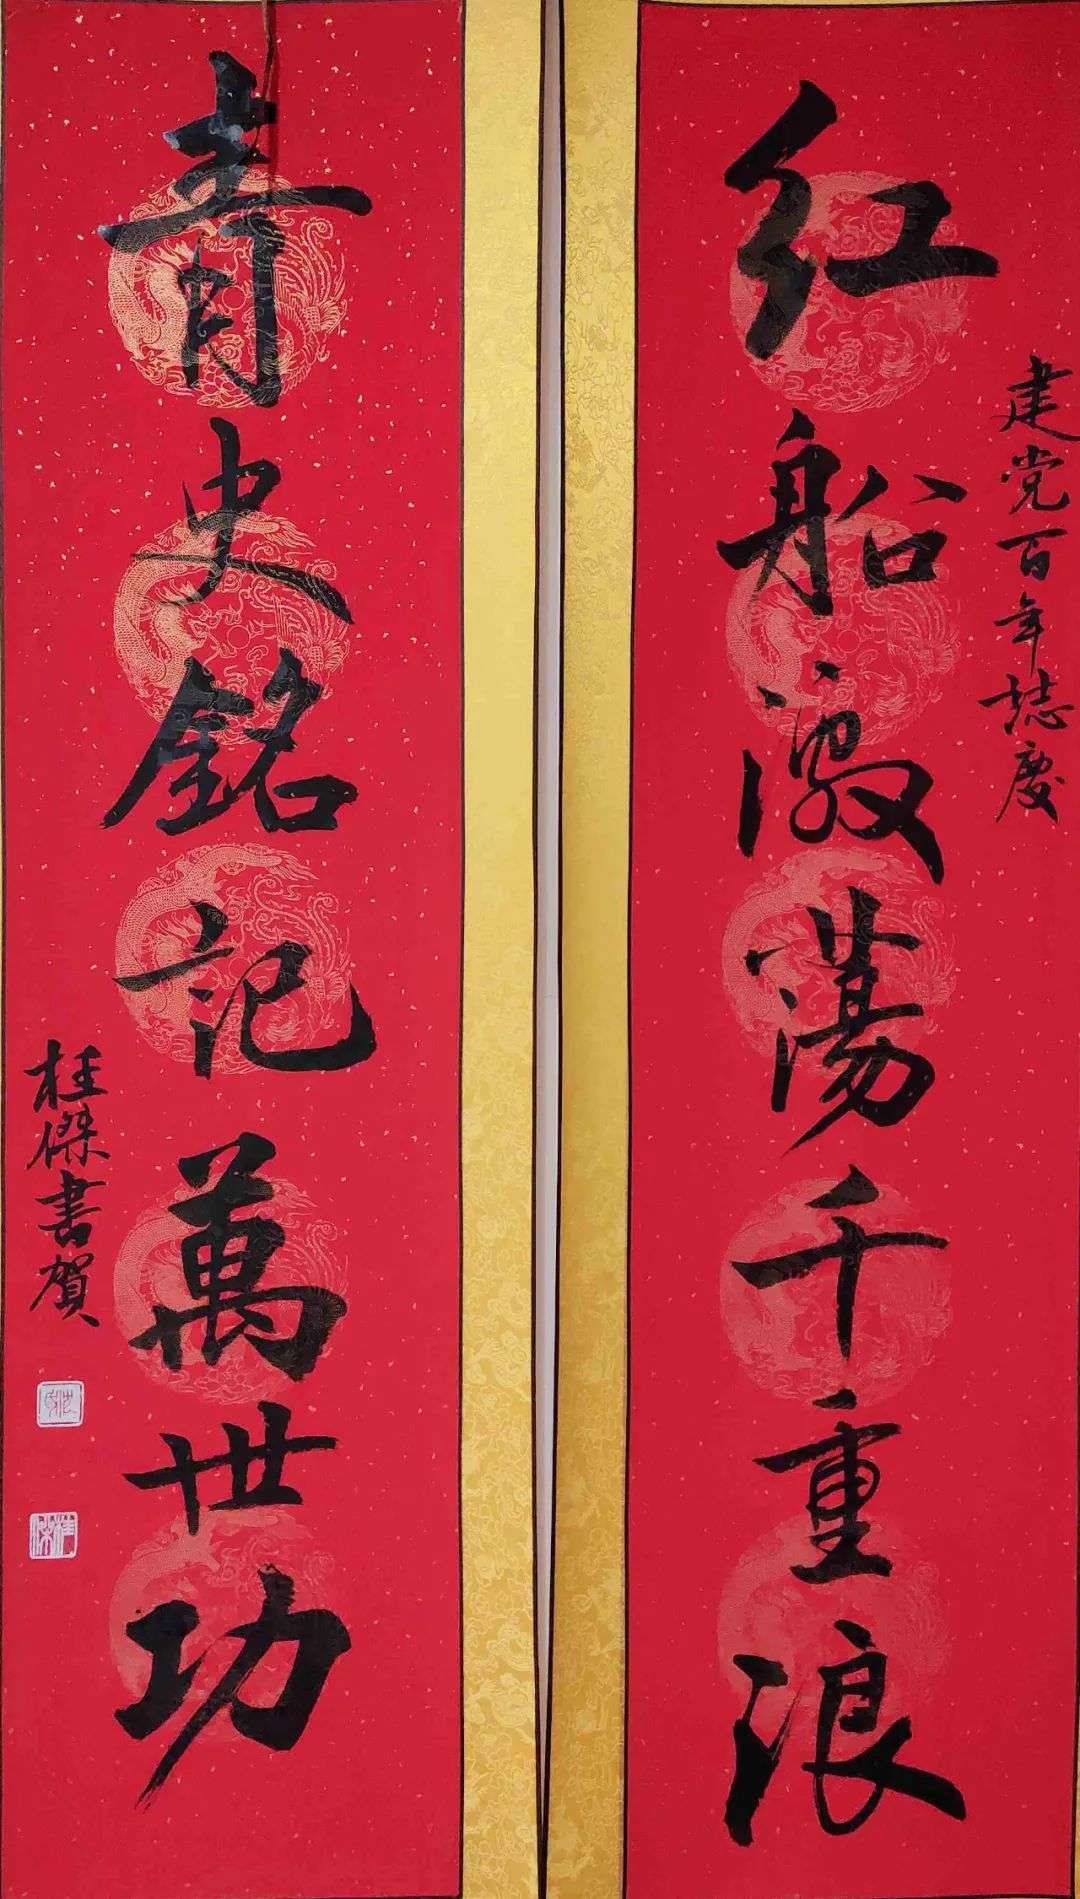 建党百年誌慶
红船激蕩千重浪
青史銘記萬世功
桂傑書賀